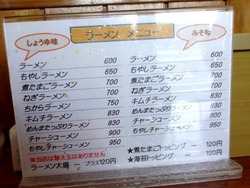 ラーメン メニュー
しょうゆ味
ラーメン 600
もやしラーメン 650
煮たまごラーメン 700
ねぎラーメン 700
ちからラーメン 750
キムチラーメン 830
めんまたっぷりラーメン 830
チャーシューメン 900
もやしチャーシューメン 950
★当店は替え玉はありません
ラーメン大盛 － プラス120円
みそ味
ラーメン 650
もやしラーメン 700
煮たまごラーメン 750
ねぎラーメン 750
キムチラーメン
めんまたっぷりラーメン
チャーシューメン 950
もやしチャーシューメン
★煮たまごトッピング ー 120円
★海苔トッピング ー 120円